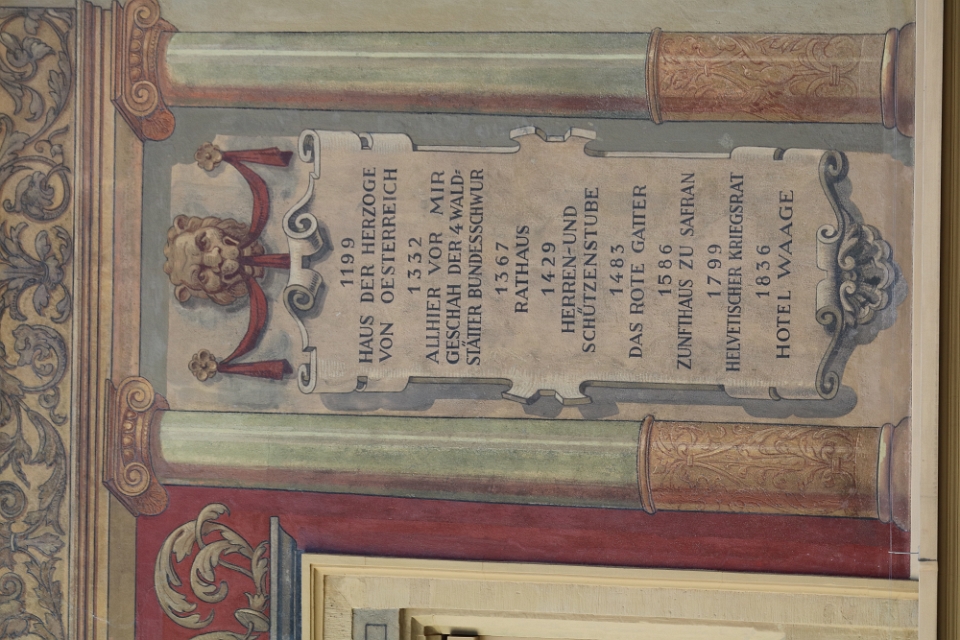 1199
HAUS DER HERZOGE
VON OESTERREICH
1332
ALLHIER VOR MIR
GESCHAH DER 4 WALD=
STÄTTER BUNDESSCHWUR
1367
RATHAUS
1429
HERREN-UND
SCHÜTZENSTUBE
1483
DAS ROTE GATTER
1586
ZUNFTHAUS ZU SAFRAN
1799
HELVETISCHER KRIEGSRAT
1836
HOTEL WAAGE